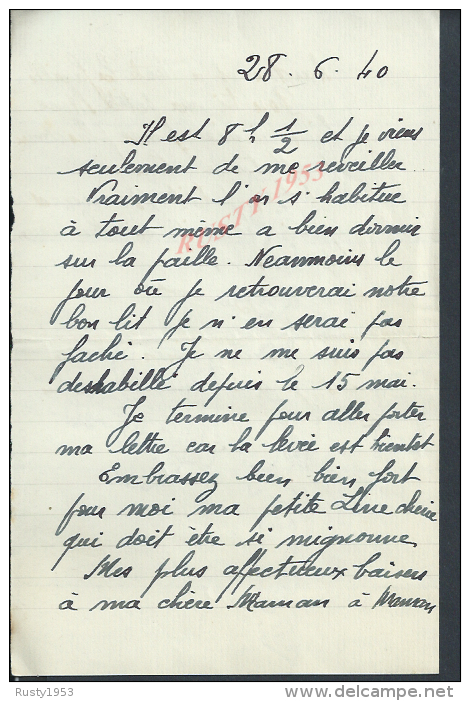 28. 6. 40
Il est 8 h 1/2 et je viens
seulement de me reveiller.
Vraiment l'on s'habitue
à tout même a bien dormir
sur la paille. Neanmoins le
jour où je retrouverai notre
bon lit je n'en serai pas
faché. Je ne me suis pas
deshabillé depuis le 15 mai.
Je termine pour aller porter
ma lettre car la levée est bientot
Embrassez bien bien fort
pour moi ma petite Line cherie
qui doit être si mignonne
Mes plus affectueux baisers
à ma chère Maman à
RUSTY 1953
Rusty1953
delcampe.net